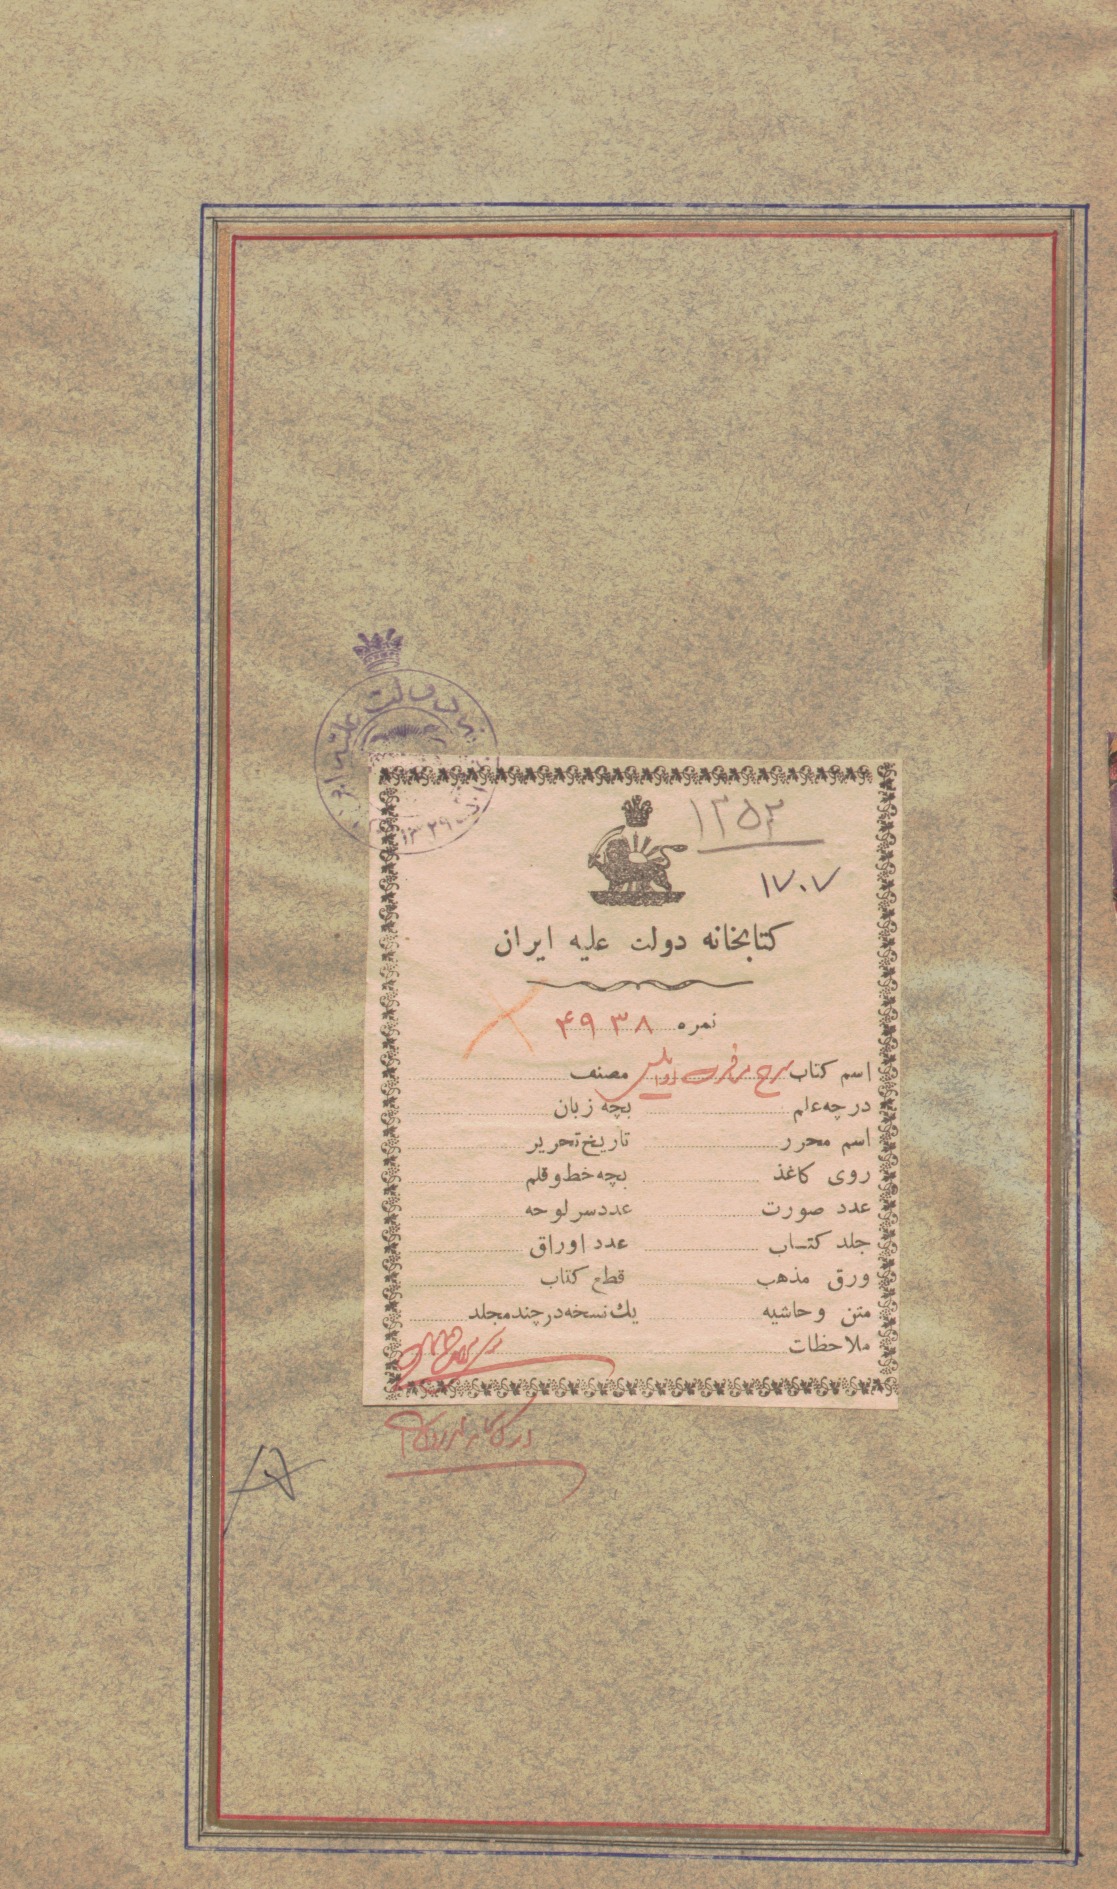 ۱۳۲۹
۱۲۵۳
۱۷۰۷
کتابخانه دولت علیه ایران
نمره ۴۹۳۸
اسم کتاب مصنف
درچه علم بچه زبان
اسم محرر تاریخ تحریر
روی کاغذ بچه خط و قلم
عدد صورت عدد سرلوحه
جلد کتاب عدد اوراق
ورق مذهب قطع کتاب
متن وحاشیه یك نسخه در چند مجلد
ملاحظات